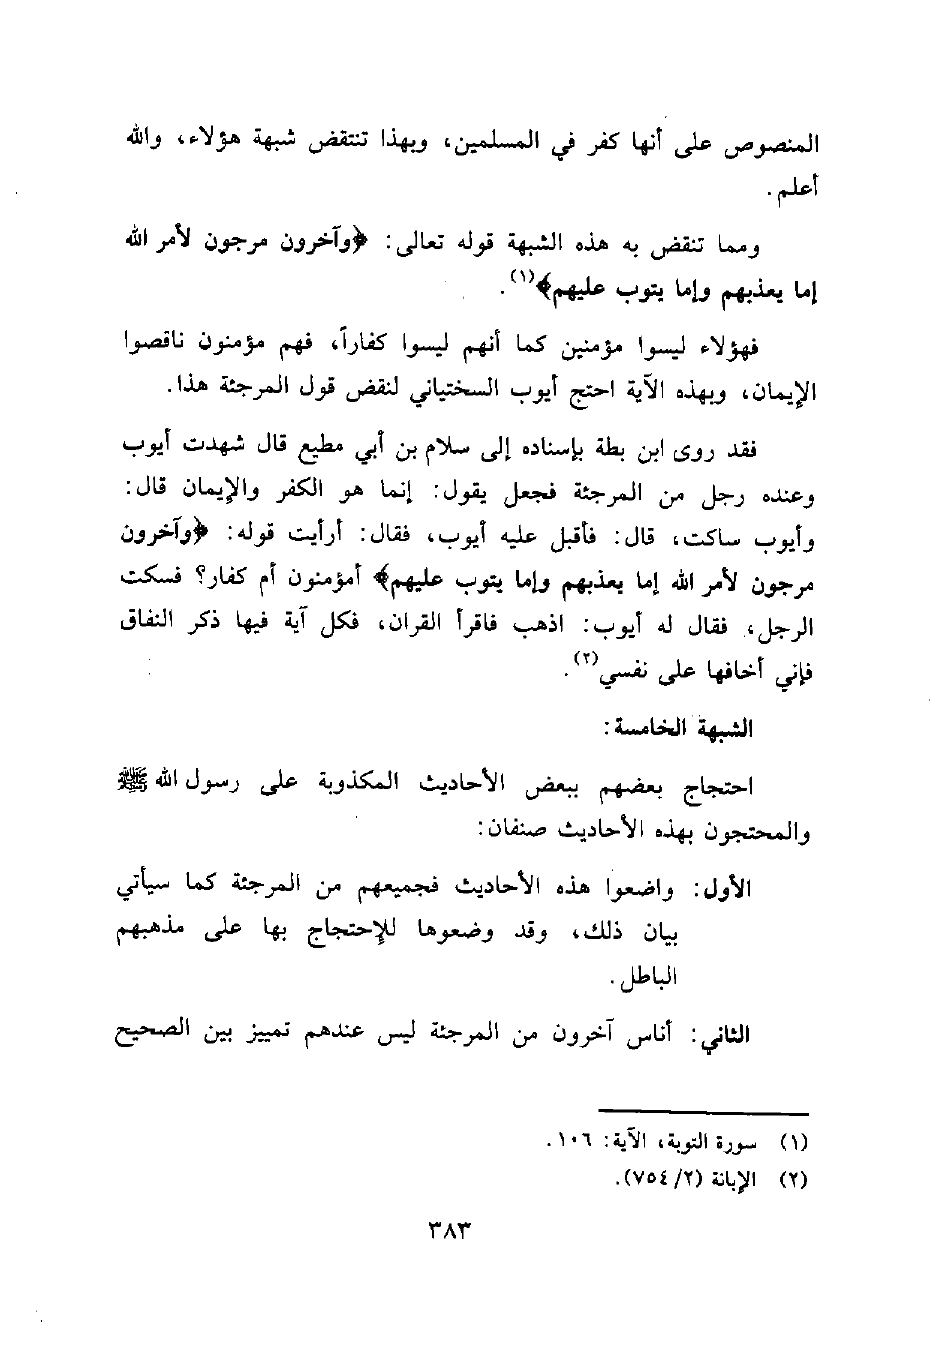 المنصوص على أنها كفر في المسلمين، وبهذا تنتقض شبهة هؤلاء، والله
أعلم.
ومما تنقض به هذه الشبهة قوله تعالى: ﴿وآخرون مرجون لأمر الله
إما يعذبهم وإما يتوب عليهم﴾(١).
فهؤلاء ليسوا مؤمنين كما أنهم ليسوا كفاراً، فهم مؤمنون ناقصوا
الإيمان، وبهذه الآية احتج أيوب السختياني لنقض قول المرجئة هذا.
فقد روى ابن بطة بإسناده إلى سلام بن أبي مطيع قال شهدت أيوب
وعنده رجل من المرجئة فجعل يقول: إنما هو الكفر والإيمان قال:
وأيوب ساكت، قال: فأقبل عليه أيوب، فقال: أرأيت قوله: ﴿وآخرون
مرجون لأمر الله إما يعذبهم وإما يتوب عليهم﴾ أمؤمنون أم كفار؟ فسكت
الرجل، فقال له أيوب: اذهب فاقرأ القران، فكل آية فيها ذكر النفاق
فإني أخافها على نفسي(٢).
الشبهة الخامسة:
احتجاج بعضهم ببعض الأحاديث المكذوبة على رسول الله ﷺ
والمحتجون بهذه الأحاديث صنفان:
الأول: واضعوا هذه الأحاديث فجميعهم من المرجئة كما سيأتي
بيان ذلك، وقد وضعوها للإحتجاج بها على مذهبهم
الباطل.
الثاني: أناس آخرون من المرجئة ليس عندهم تمييز بين الصحيح
(١) سورة التوبة، الآية: ١٠٦.
(٢) الإبانة (٢/ ٧٥٤).
٣٨٣